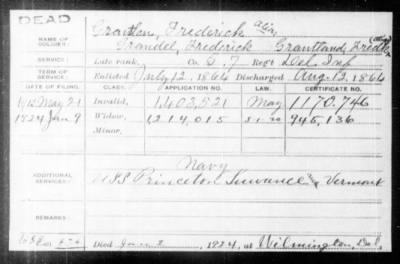 DEAD
NAME OF SOLDIER:
Grantlen, Frederick alias
Grandel, Frederick Grantland, Fredk
SERVICE:
Late rank, Co. G, 7 Reg't Del. Inf
TERM OF SERVICE:
Enlisted July 12, 1864 Discharged Aug. 12, 1864
DATE OF FILING. CLASS. APPLICATION NO. LAW. CERTIFICATE NO.
May 21 Invalid, 1,403,521 May 1,170,746
1924 Jan 9 Widow, 1,214,015 945,136
Minor,
ADDITIONAL SERVICES:
Navy
USS Princeton Suwanee Vermont
REMARKS:
Died Jan 2, 1924, at Wilmington, Del.